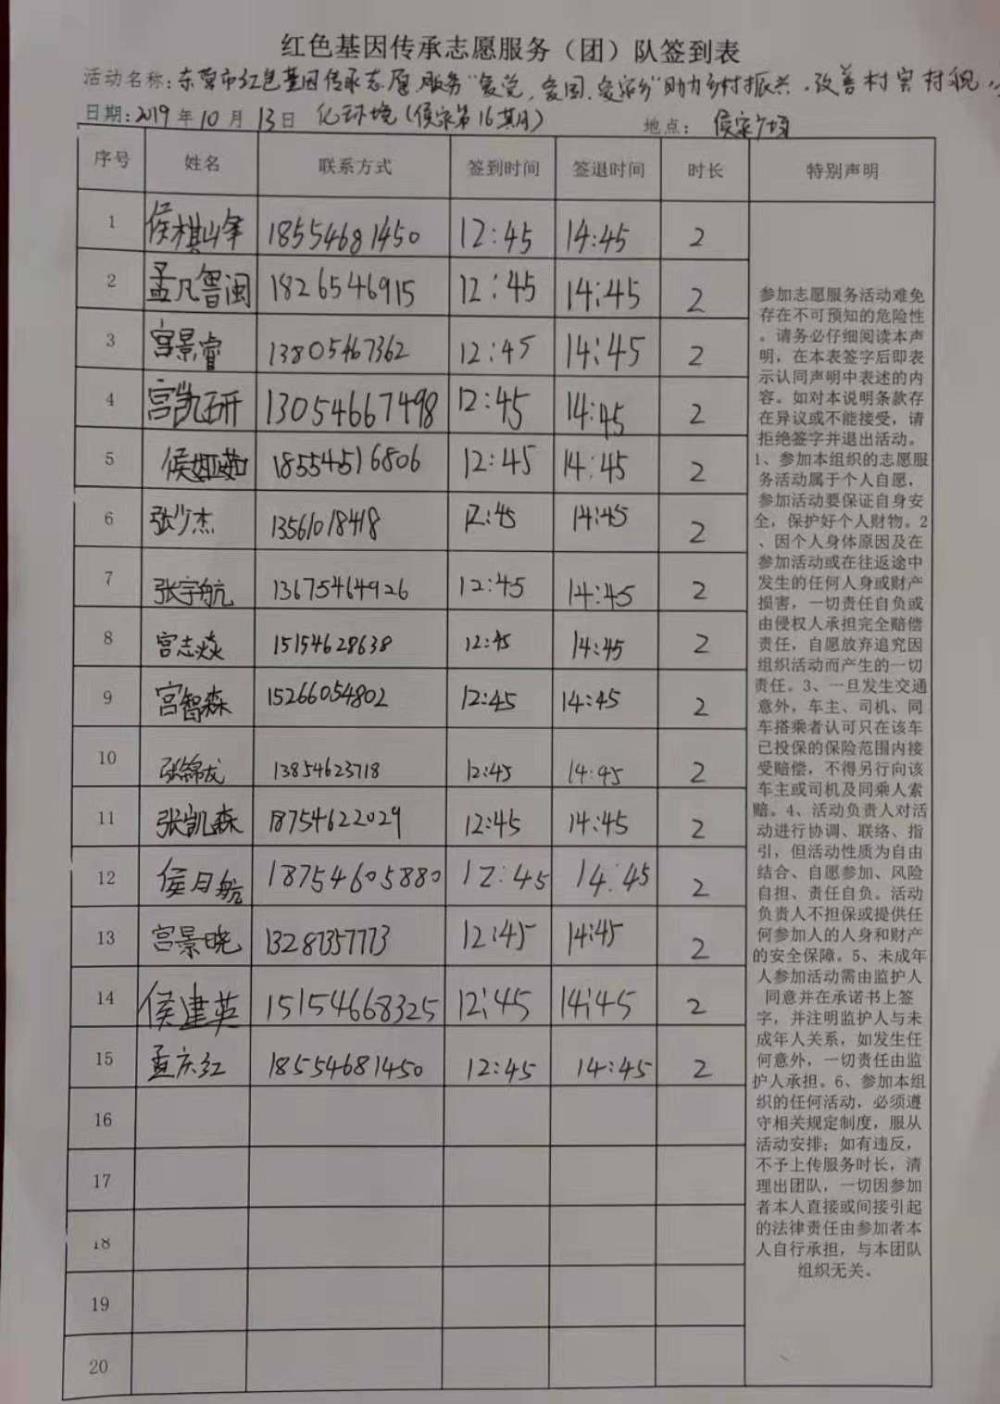 红色基因传承志愿服务（团）队签到表
活动名称：东营市红色基因传承志愿服务“爱党，爱国，爱家乡”助力乡村振兴，改善村容村貌，
日期：2019年10月13日 化环境（侯家第16期） 地点：侯家广场
序号 姓名 联系方式 签到时间 签退时间 时长 特别声明
1 侯棋峰 18554681450 12:45 14:45 2
2 孟凡鲁闽 1826546915 12:45 14:45 2
3 宫景睿 13805467362 12:45 14:45 2
4 宫凯研 13054667498 12:45 14:45 2
5 侯娅茹 18554516806 12:45 14:45 2
6 张少杰 13561018418 12:45 14:45 2
7 张宇航 13675464926 12:45 14:45 2
8 宫志焱 15154628638 12:45 14:45 2
9 宫智森 15266054802 12:45 14:45 2
10 张锦龙 13854623718 12:45 14:45 2
11 张凯森 18754622029 12:45 14:45 2
12 侯月航 18754605880 12:45 14:45 2
13 宫景晓 13281357773 12:45 14:45 2
14 侯建英 15154668325 12:45 14:45 2
15 孟庆红 18554681450 12:45 14:45 2
16
17
18
19
20
参加志愿服务活动难免
存在不可预知的危险性
。请务必仔细阅读本声
明，在本表签字后即表
示认同声明中表述的内
容。如对本说明条款存
在异议或不能接受，请
拒绝签字并退出活动。
1、参加本组织的志愿服
务活动属于个人自愿，
参加活动要保证自身安
全，保护好个人财物。2
、因个人身体原因及在
参加活动或在往返途中
发生的任何人身或财产
损害，一切责任自负或
由侵权人承担完全赔偿
责任，自愿放弃追究因
组织活动而产生的一切
责任。3、一旦发生交通
意外，车主、司机、同
车搭乘者认可只在该车
已投保的保险范围内接
受赔偿，不得另行向该
车主或司机及同乘人索
赔。4、活动负责人对活
动进行协调、联络、指
引，但活动性质为自由
结合、自愿参加、风险
自担、责任自负。活动
负责人不担保或提供任
何参加人的人身和财产
的安全保障。5、未成年
人参加活动需由监护人
同意并在承诺书上签
字，并注明监护人与未
成年人关系，如发生任
何意外，一切责任由监
护人承担。6、参加本组
织的任何活动，必须遵
守相关规定制度，服从
活动安排；如有违反，
不予上传服务时长，清
理出团队，一切因参加
者本人直接或间接引起
的法律责任由参加者本
人自行承担，与本团队
组织无关。